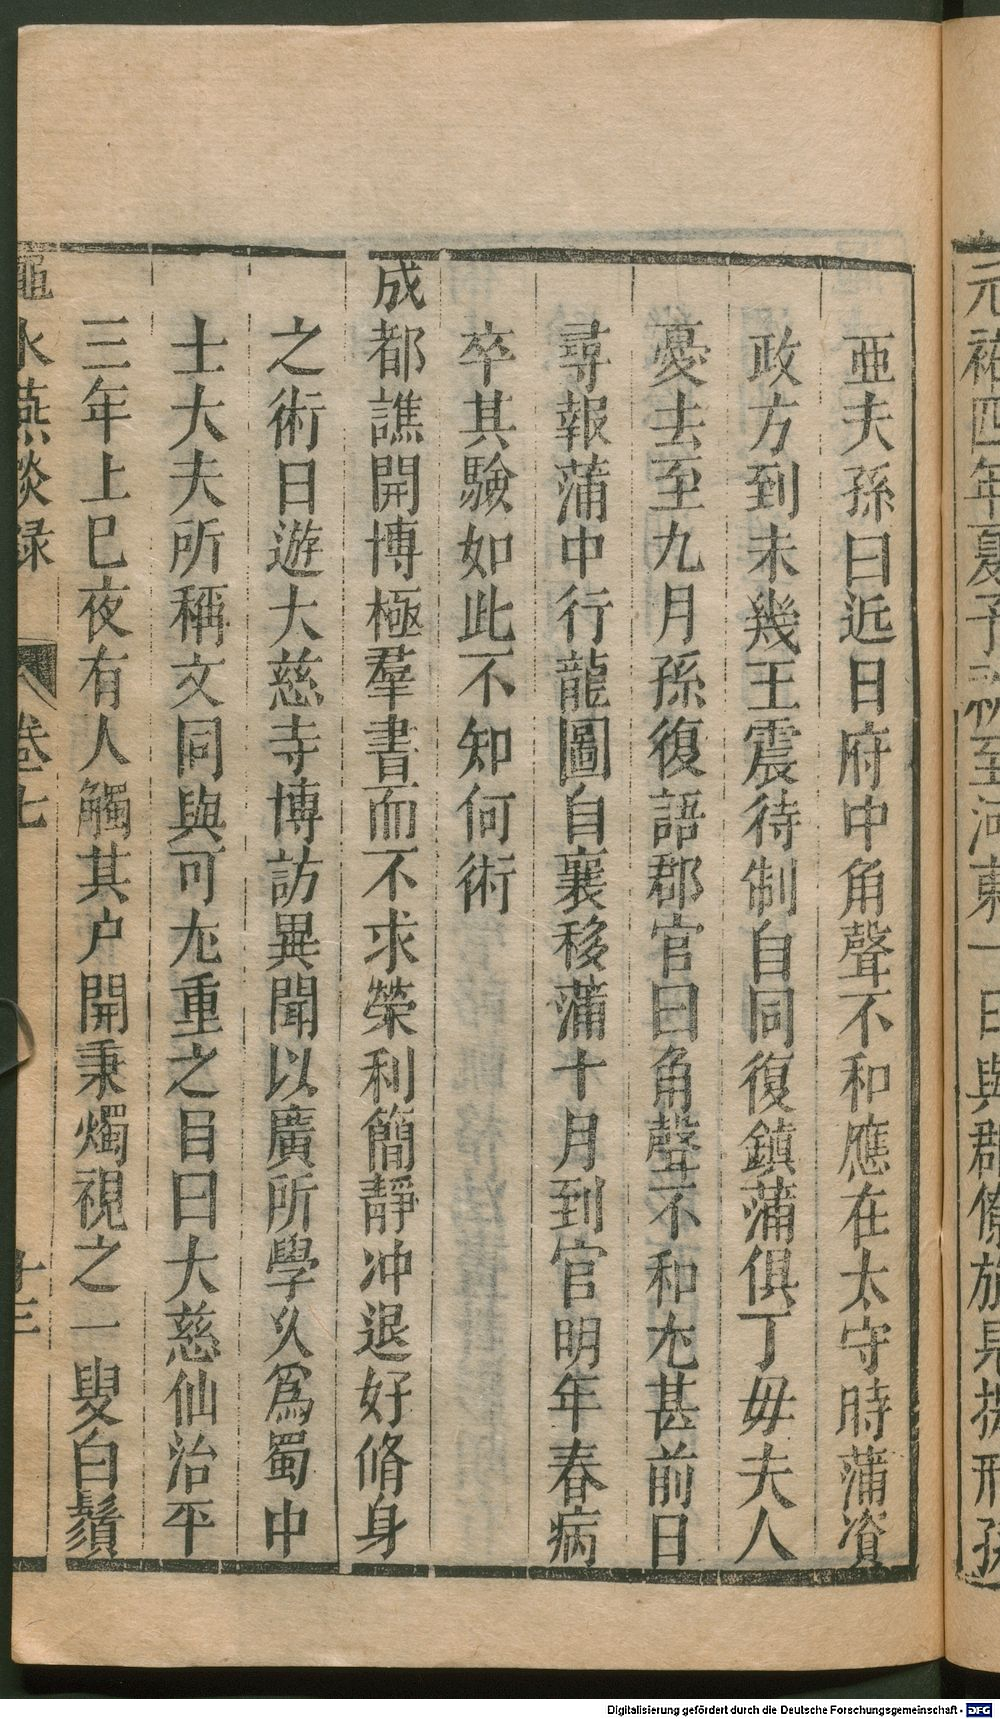 元祐四年夏予至河東一日與郡僚旅見提刑孫
亞夫孫曰近日府中角聲不和應在太守時蒲資
政方到未幾王震待制自同復鎮蒲俱丁毋夫人
憂去至九月孫復語郡官曰角聲不和尤甚前日
尋報蒲中行龍圖自襄移蒲十月到官明年春病
卒其驗如此不知何術
成都譙開博極羣書而不求榮利簡靜冲退好脩身
之術日遊大慈寺博訪異聞以廣所學久爲蜀中
士大夫所稱文同與可尤重之目曰大慈仙治平
三年上巳夜有人觸其户開秉燭視之一叟白鬚
澠水燕談録 卷七 十三
Digitalisierung gefördert durch die Deutsche Forschungsgemeinschaft - DFG